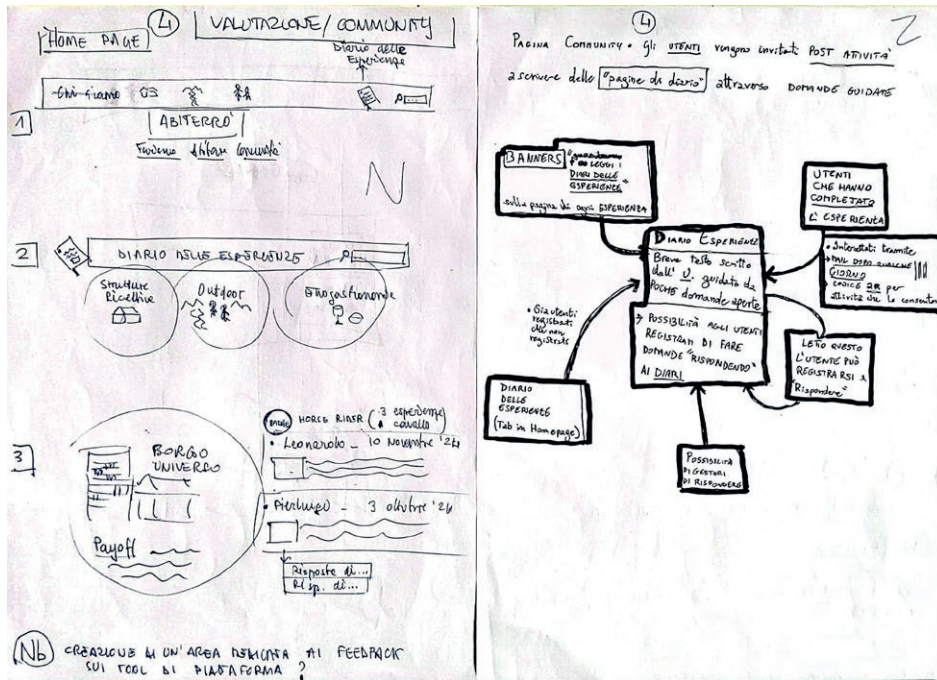 4
VALUTAZIONE/COMMUNITY
HOME PAGE
Diario delle
Esperienze
Chi siamo
1
ABITERRO'
2
DIARIO DELLE ESPERIENZE
Strutture
Ricettive
Outdoor
Enogastronomia
3
BORGO
UNIVERSO
Payoff
BADGE HORSE RIDER (3 esperienze a cavallo)
• Leonardo - 10 Novembre '24
• Pierluigi - 3 ottobre '24
Risposte di...
Risp. di...
Nb CREAZIONE DI UN'AREA DEDICATA AI FEEDBACK
SUI TOOL DI PIATTAFORMA?
4
2
PAGINA COMMUNITY • gli UTENTI vengono invitati POST ATIVITÀ
a scrivere delle "pagine di diario" attraverso DOMANDE GUIDATE
BANNERS
LEGGI I
DIARI DELLE
ESPERIENZE"
sulla pagina di ogni ESPERIENZA
UTENTI
CHE HANNO
COMPLETATO
L'ESPERIENZA
• Intercettati tramite
MAIL DOPO QUALCHE
GIORNO
CODICE QR per
attività che lo consentono
DIARIO ESPERIENZE
Breve testo scritto
dall'U. guidato da
POCHE domande aperte
→ POSSIBILITÀ AGLI UTENTI
REGISTRATI DI FARE
DOMANDE "RISPONDENDO"
AI DIARI
• Sia utenti
registrati
che non
registrati
LETTO QUESTO
L'UTENTE PUÒ
REGISTRARSI e
"Rispondere"
DIARIO
DELLE
ESPERIENZE
(Tab in Homepage)
POSSIBILITÀ
DI GESTORI
DI RISPONDERE